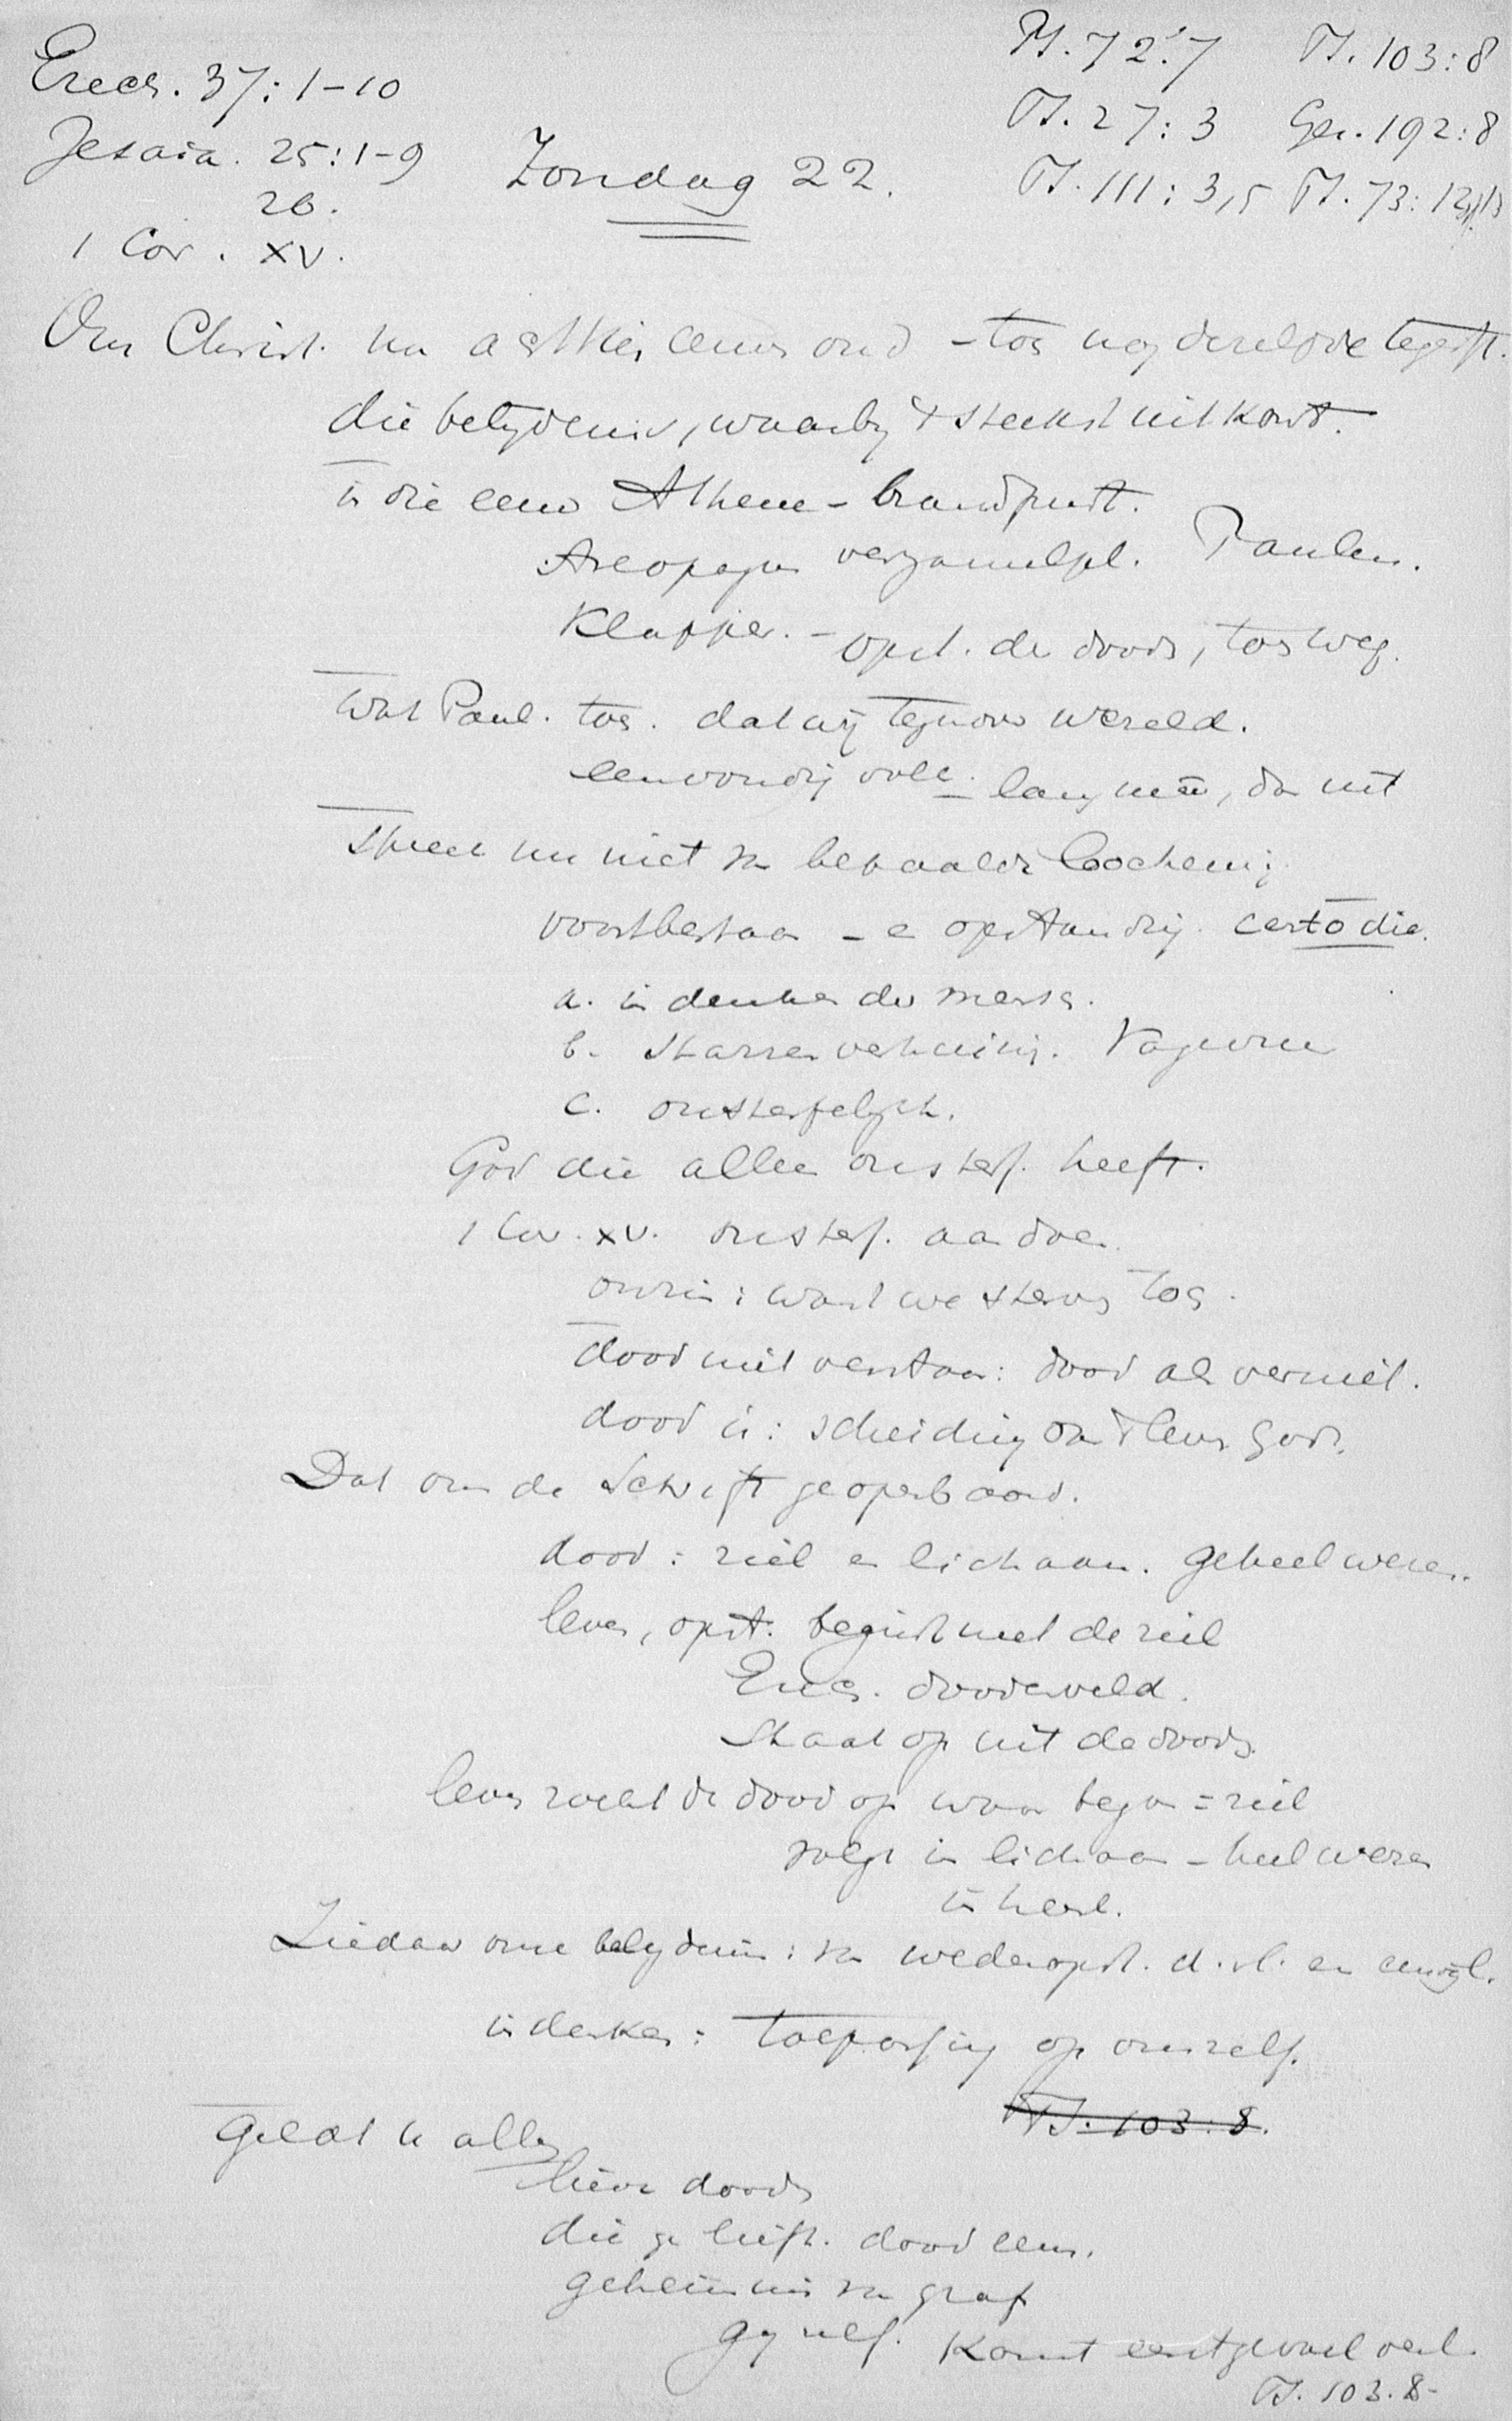 Ezech. 37:1-10
Jesaia. 25:1-9
26.
1 Cor. XV.
Zondag 22.
Ps. 72:7 Ps. 103:8
Ps. 27:3 Gez. 192:8
Ps. 111:3,5 Ps. 73:12,13
Ons Christ. na achttien eeuw oud - toch nog dezelfde tegenst.
die belydenis, waarby 't sterkst uitkomt.
in die eeuw Athene - brandpunt.
Areopagus verzamelpl. Paulus.
Klapper. - opst. der doods, toch weg.
Wat Paul. toch. dat wij tegenov wereld.
eenvoudig volk. lang niet, da niet
Spreek nu niet van bepaalde loochening
voortbestaan - en opstanding. certo die.
a. in denken der mensch.
b. starre ontkenning.
c. onsterfelijkh.
God die alleen onsterf. heeft.
1 Cor. XV. onsterf. aandoen.
onzin: want we sterven toch.
dood niet verstaan: dood als verniet.
dood is: scheiding van 't leven Gods.
Dat ons de Schrift geopenbaard.
dood: ziel en lichaam. geheel wezen.
leven, opst. begint met de ziel
Ezech. doodenveld.
Staat op uit de dooden
leven zoekt de dood op waar begon = ziel
volgt in lichaam - heel wezen
in heerl.
Ziedaar onze belydenis: van wederopst. d. vl. en eeuwigl.
in denken: toepassing op onszelf.
Ps. 103:8.
Geldt u allen
lieve dooden
die ge liefh. dood eens.
geheimenis van graf
gy zelf. Komt eerst gevoel verl.
Ps. 103.8-